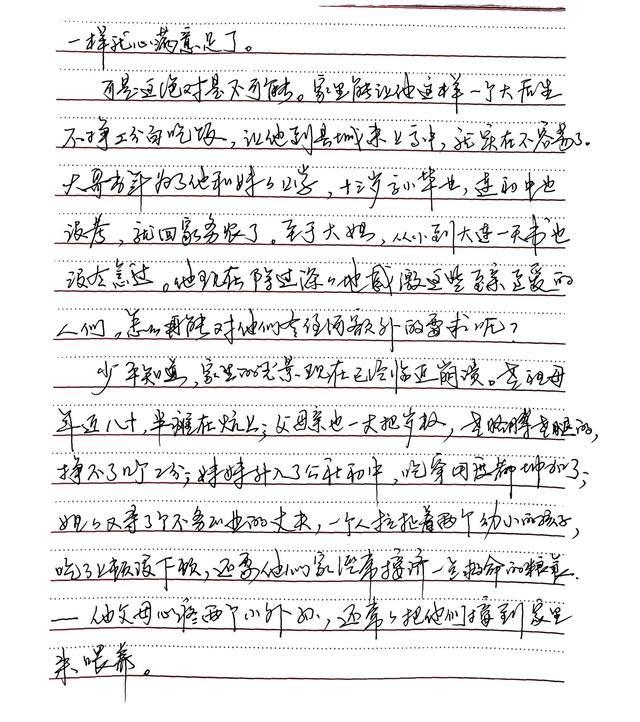 一样就心满意足了。
可是这绝对是不可能。家里能让他这样一个大后生
不挣工分白吃饭，让他到县城来上高中，就实在不容易了.
大哥当年为了他和妹々上学，十三岁高小毕业，连初中也
没考，就回家务农了。至于大姐，从小到大连一天书也
没有念过。他现在除过深々地感激这些至亲至爱的
人们，怎么再能对他们有任何额外的要求呢？
少平知道，家里的光景现在已经临近崩溃。老祖母
年近八十，半瘫在炕上；父母亲也一大把岁数，老胳膊老腿的，
挣不了几个工分；妹妹升入了公社初中，吃穿用度都增加了；
姐々又寻了个不务正业的丈夫，一个人拉扯着两个幼小的孩子，
吃了上顿没下顿，还要他们家经常接济一点救命的粮食.
——他父母心疼两个小外孙，还常々把他们接到家里
来喂养。